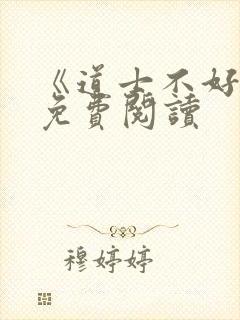 《道士不好
免費閱讀
穆婷婷